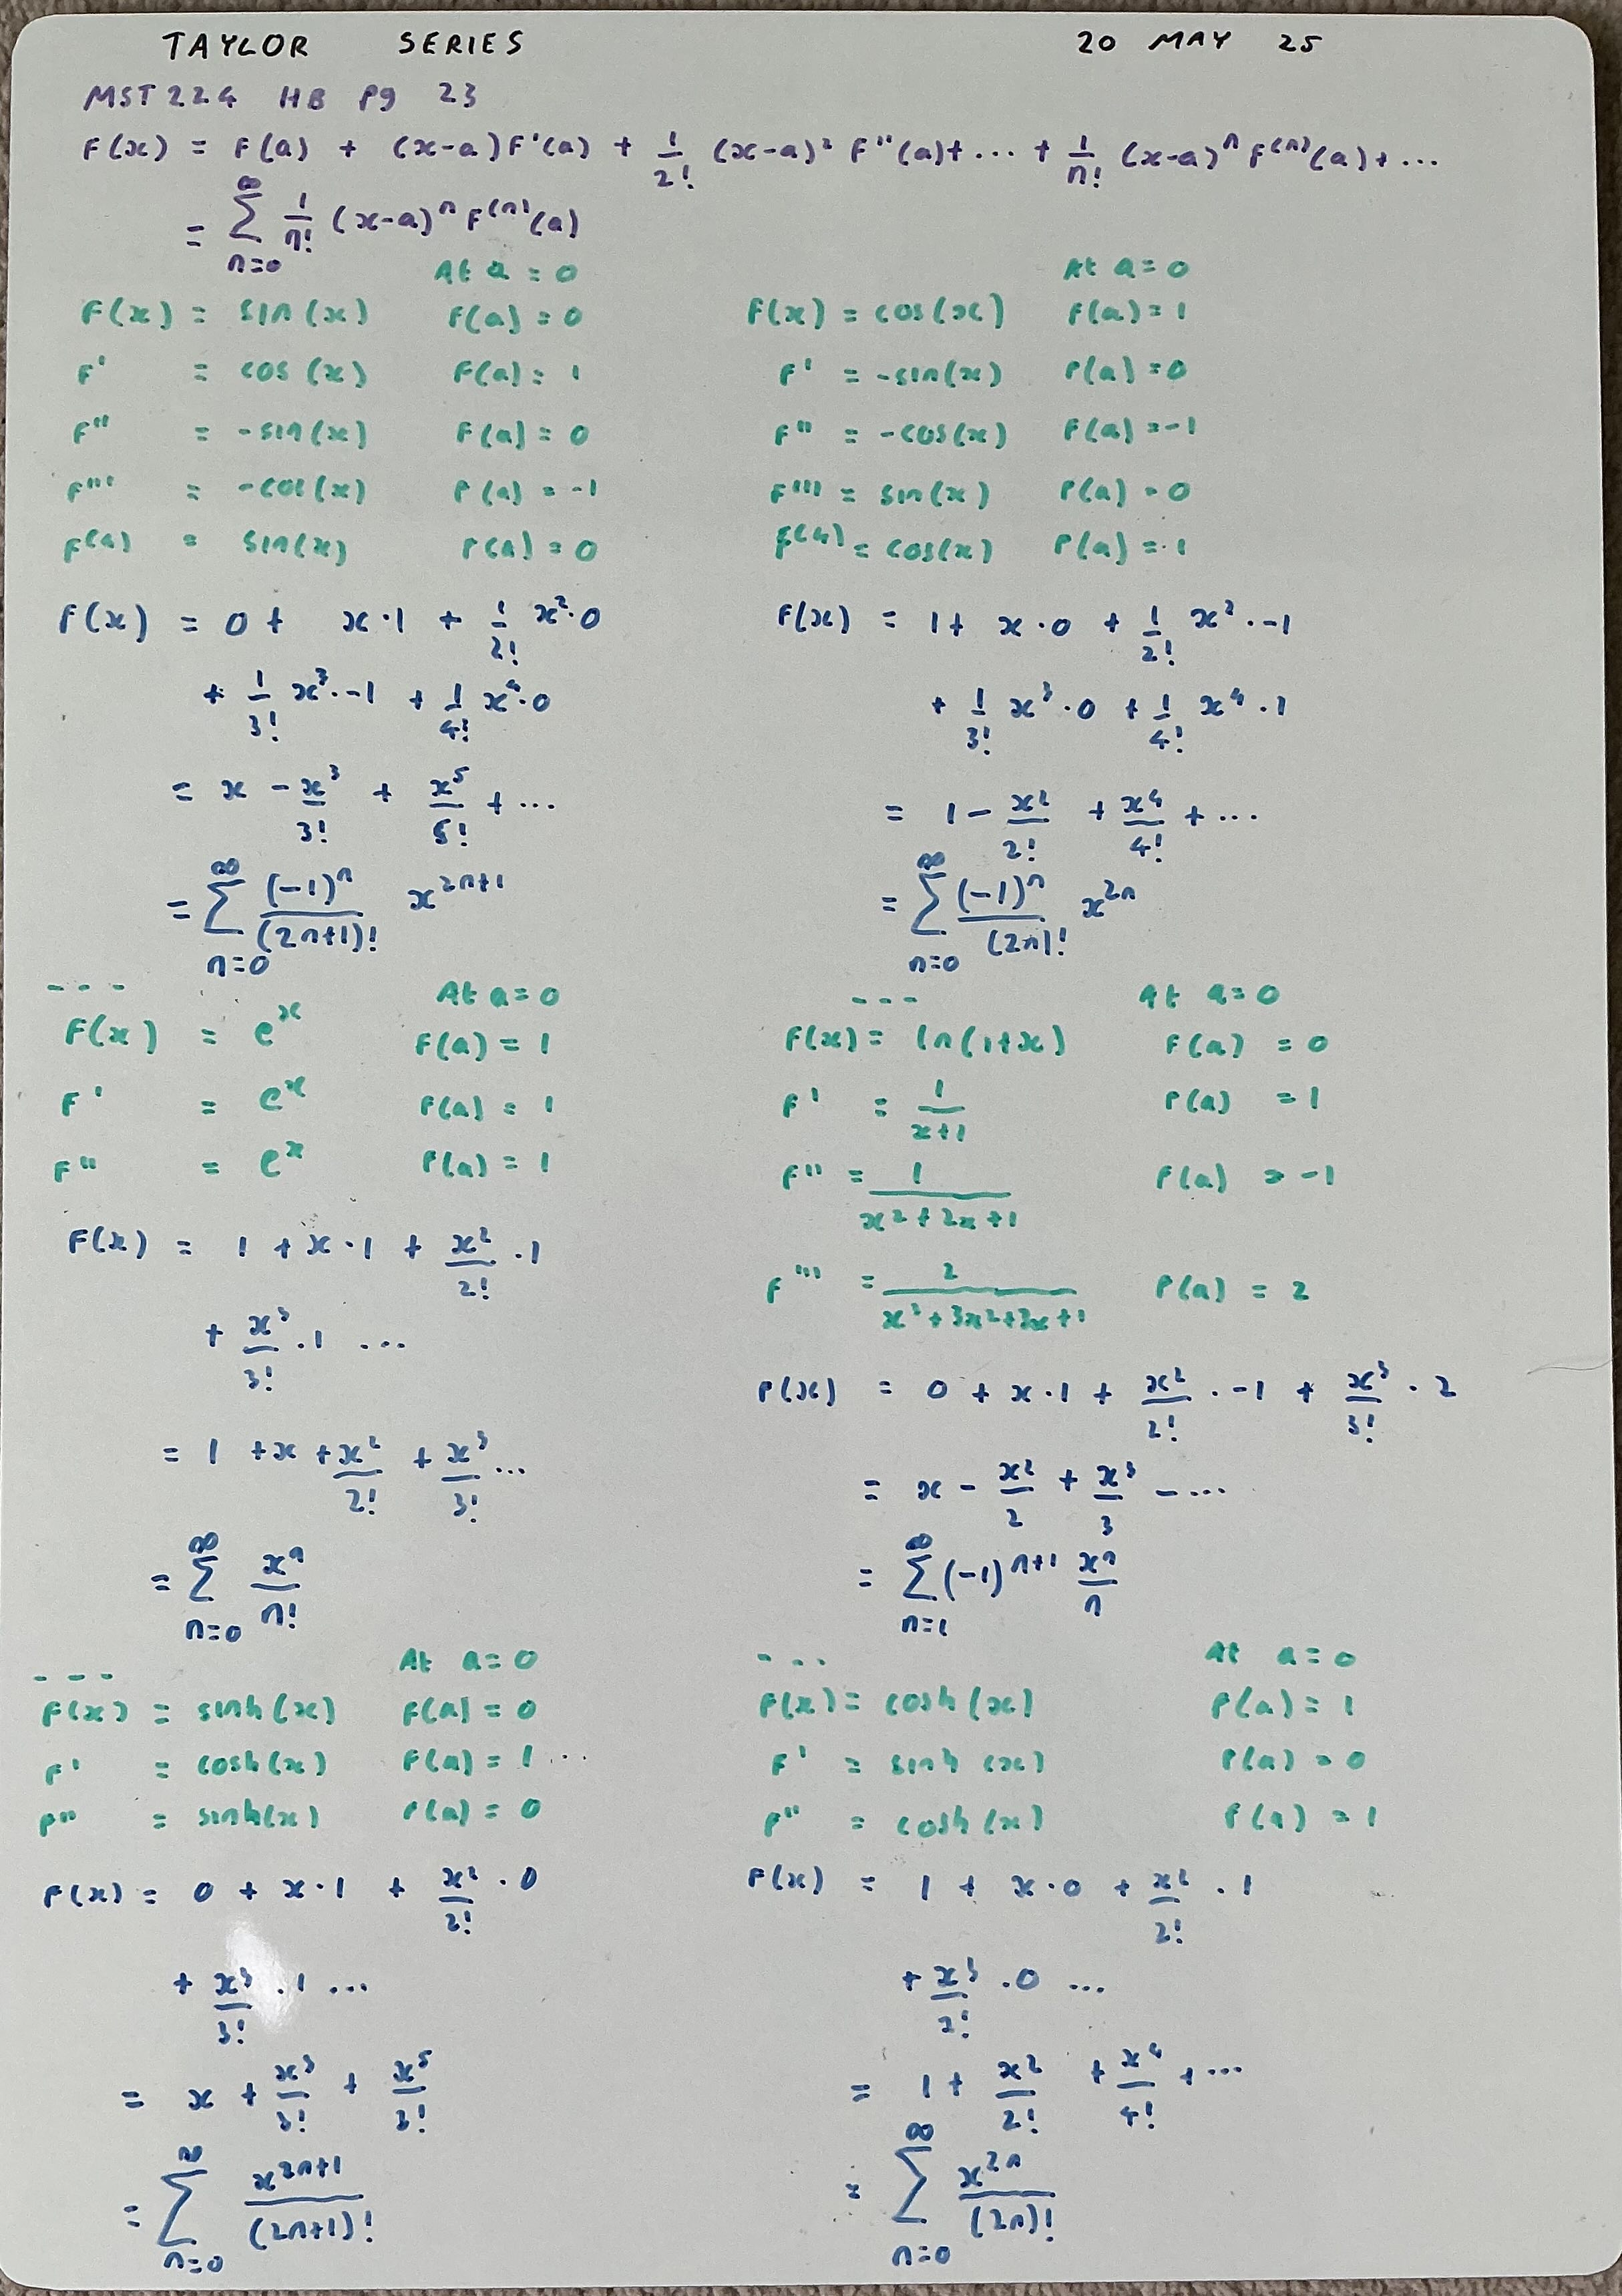 TAYLOR SERIES 20 MAY 25
MST224 HB Pg 23
F(x) = F(a) + (x-a)F'(a) + 1/2! (x-a)² F''(a) + ... + 1/n! (x-a)ⁿ F⁽ⁿ⁾(a) + ...
= ∑_{n=0}^{∞} 1/n! (x-a)ⁿ F⁽ⁿ⁾(a)
At a = 0
F(x) = sin(x) F(a) = 0
F' = cos(x) F(a) = 1
F'' = -sin(x) F(a) = 0
F''' = -cos(x) F(a) = -1
F⁽⁴⁾ = sin(x) F(a) = 0
F(x) = 0 + x·1 + 1/2! x²·0
+ 1/3! x³·-1 + 1/4! x⁴·0
= x - x³/3! + x⁵/5! + ...
= ∑_{n=0}^{∞} (-1)ⁿ/(2n+1)! x²ⁿ⁺¹
At a = 0
F(x) = cos(x) F(a) = 1
F' = -sin(x) F(a) = 0
F'' = -cos(x) F(a) = -1
F''' = sin(x) F(a) = 0
F⁽⁴⁾ = cos(x) F(a) = 1
F(x) = 1 + x·0 + 1/2! x²·-1
+ 1/3! x³·0 + 1/4! x⁴·1
= 1 - x²/2! + x⁴/4! + ...
= ∑_{n=0}^{∞} (-1)ⁿ/(2n)! x²ⁿ
--- At a = 0
F(x) = eˣ F(a) = 1
F' = eˣ F(a) = 1
F'' = eˣ F(a) = 1
F(x) = 1 + x·1 + x²/2! ·1
+ x³/3! ·1 ...
= 1 + x + x²/2! + x³/3! ...
= ∑_{n=0}^{∞} xⁿ/n!
--- At a = 0
F(x) = ln(1+x) F(a) = 0
F' = 1/(x+1) F(a) = 1
F'' = 1/(x²+2x+1) F(a) = -1
F''' = 2/(x³+3x²+3x+1) F(a) = 2
F(x) = 0 + x·1 + x²/2! ·-1 + x³/3! ·2
= x - x²/2 + x³/3 - ...
= ∑_{n=1}^{∞} (-1)ⁿ⁺¹ xⁿ/n
--- At a = 0
F(x) = sinh(x) F(a) = 0
F' = cosh(x) F(a) = 1 ...
F'' = sinh(x) F(a) = 0
F(x) = 0 + x·1 + x²/2! ·0
+ x³/3! ·1 ...
= x + x³/3! + x⁵/3!
= ∑_{n=0}^{∞} x²ⁿ⁺¹/(2n+1)!
--- At a = 0
F(x) = cosh(x) F(a) = 1
F' = sinh(x) F(a) = 0
F'' = cosh(x) F(a) = 1
F(x) = 1 + x·0 + x²/2! ·1
+ x³/2! ·0 ...
= 1 + x²/2! + x⁴/4! + ...
= ∑_{n=0}^{∞} x²ⁿ/(2n)!